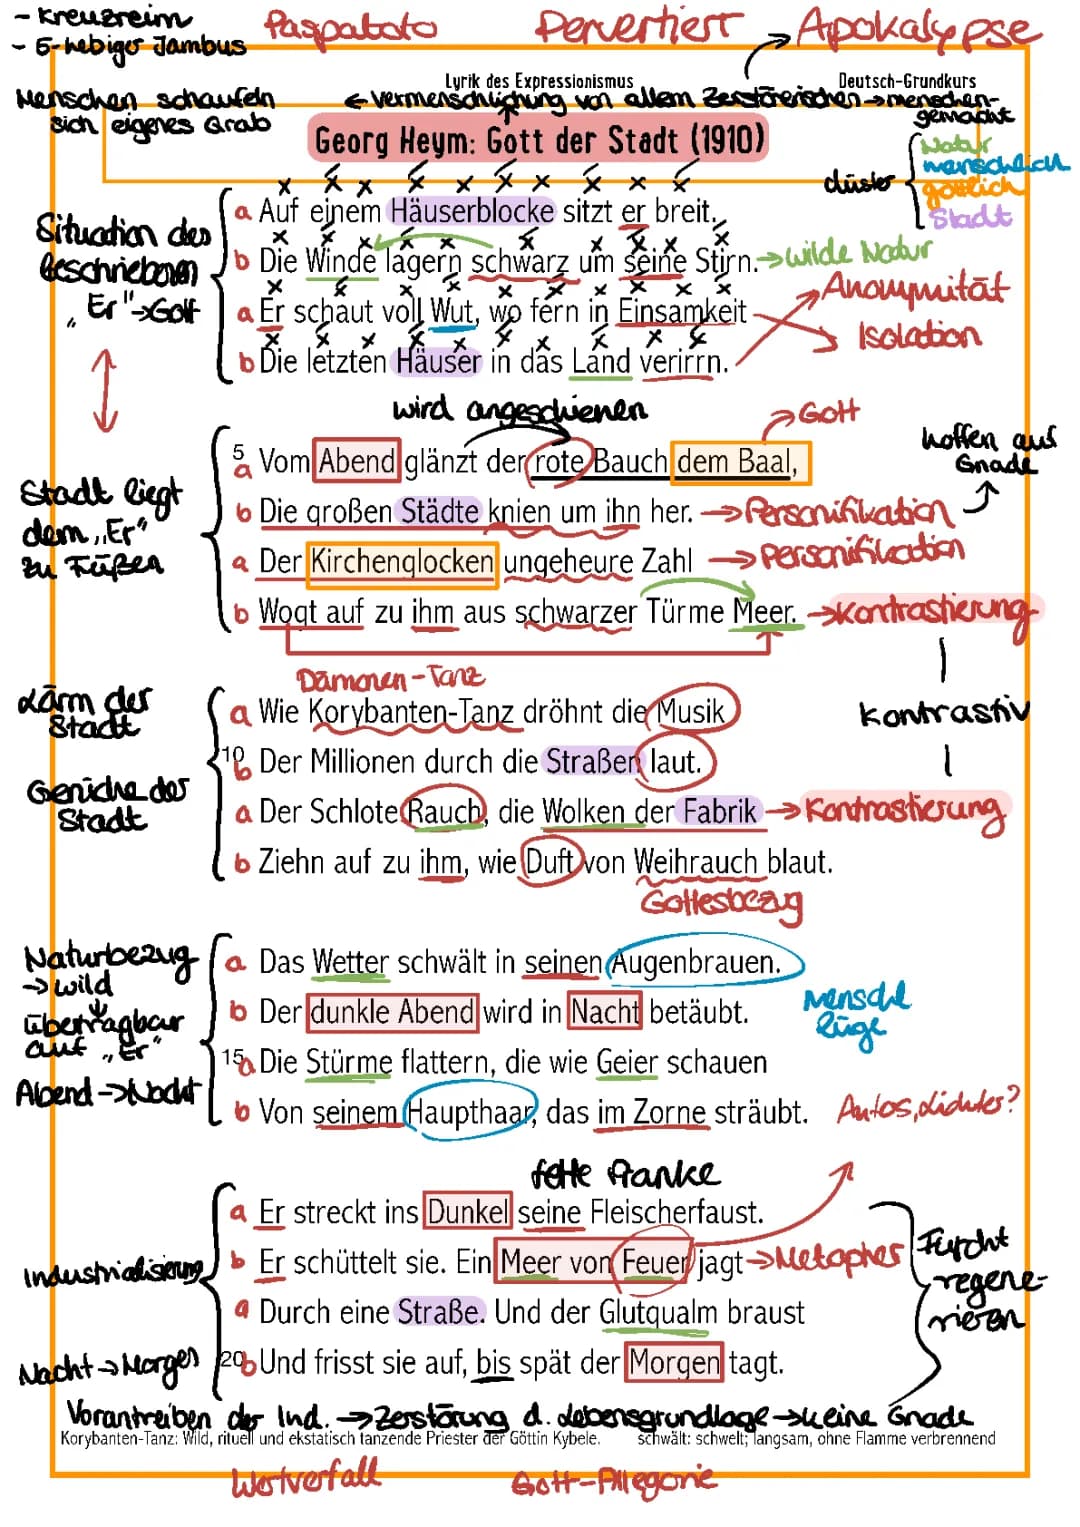 - Kreuzreim
- 5-hebiger Jambus
Pervertiert
Apokalypse
Lyrik des Expressionismus
Deutsch-Grundkurs
Menschen schaufeln
sich eigenes Grab
← Vermenschlichung von allem Zerstörerischen → menschen-
gemacht
Georg Heym: Gott der Stadt (1910)
düster
Natur
menschlich
göttlich
Stadt
Situation des
beschriebenen
"Er" → Gott
a Auf einem Häuserblocke sitzt er breit.
b Die Winde lagern schwarz um seine Stirn. → wilde Natur
a Er schaut voll Wut, wo fern in Einsamkeit
b Die letzten Häuser in das Land verirrn.
Anonymität
Isolation
wird angeschienen
Gott
hoffen auf
Gnade
Stadt liegt
dem "Er"
zu Füßen
5
a Vom Abend glänzt der rote Bauch dem Baal,
b Die großen Städte knien um ihn her. → Personifikation
a Der Kirchenglocken ungeheure Zahl → Personifikation
b Wogt auf zu ihm aus schwarzer Türme Meer. → Kontrastierung
Kontrastiv
Dämonen-Tanz
Lärm der
Stadt
Gerüche der
Stadt
a Wie Korybanten-Tanz dröhnt die Musik
10
b Der Millionen durch die Straßen laut.
a Der Schlote Rauch, die Wolken der Fabrik → Kontrastierung
b Ziehn auf zu ihm, wie Duft von Weihrauch blaut.
Gottesbezug
Naturbezug
→ wild
übertragbar
auf "Er"
Abend → Nacht
a Das Wetter schwält in seinen Augenbrauen.
b Der dunkle Abend wird in Nacht betäubt.
15
a Die Stürme flattern, die wie Geier schauen
b Von seinem Haupthaar, das im Zorne sträubt.
Autos, Lichter?
fette Pranke
Industrialisierung
Nacht → Morgen
a Er streckt ins Dunkel seine Fleischerfaust.
b Er schüttelt sie. Ein Meer von Feuer jagt → Metapher
a Durch eine Straße. Und der Glutqualm braust
20
b Und frisst sie auf, bis spät der Morgen tagt.
Furcht
regene-
rieren
Vorantreiben der Ind. → Zerstörung d. Lebensgrundlage → keine Gnade
Korybanten-Tanz: Wild, rituell und ekstatisch tanzende Priester der Göttin Kybele.
schwält: schwelt; langsam, ohne Flamme verbrennend
Wertverfall
Gott-Allegorie